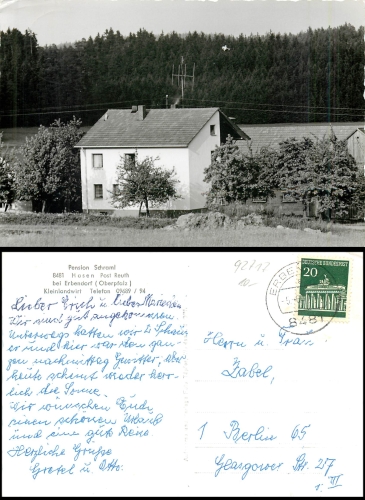 Pension Schraml
8481 Husen Post Reuth
bei Erbendorf (Oberpfalz)
Kleinlandwirt Telefon 09689 / 94
Lieber Erich u. lieber
Wir sind gut angekommen.
Unterwegs hatten wir
er und hier war den gan-
zen nachmittag Gewitter, aber
heute scheint wieder herr-
lich die Sonne.
Wir wünschen Euch
einen schönen Urlaub
und eine gute
Herzliche Grüße
Gretel u. Otto.
DEUTSCHE BUNDESPOST
20
8481
Herrn u. Frau
Zabel,
1 Berlin 65
Str. 27
III